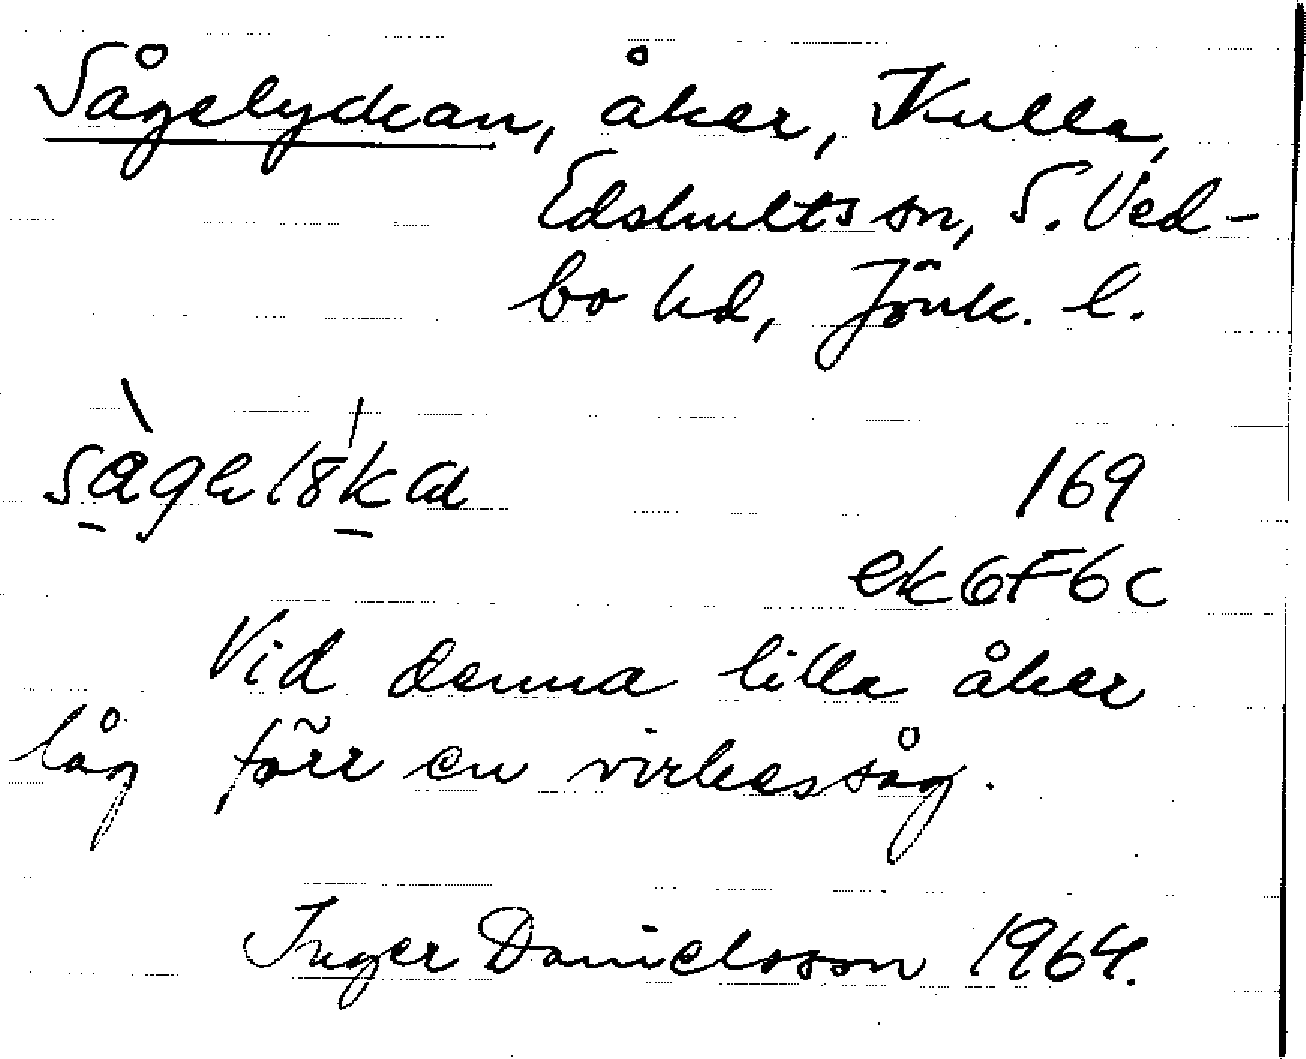 Sågelyckan, åker, Kulla,
Edshults sn, S. Ved-
bo hd, Jönk. l.
169
ek 6F6c
Vid denna lilla åker
låg förr en virkessåg.
Inger Danielsson 1964.